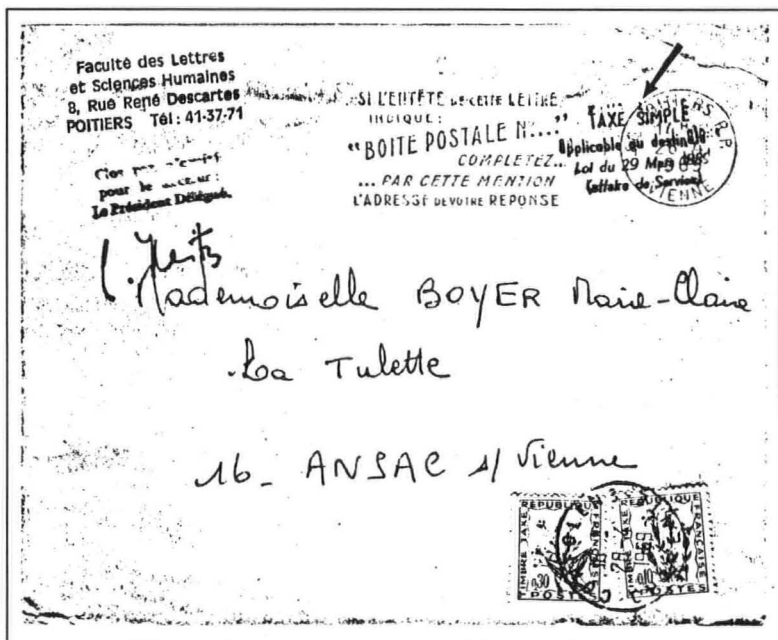 Faculté des Lettres
et Sciences Humaines
8, Rue René Descartes
POITIERS Tél: 41-37-71
pour le
Le Président Délégué.
SI L'ENTÊTE DE CETTE LETTRE
INDIQUE:
"BOITE POSTALE N°...."
COMPLETEZ...
... PAR CETTE MENTION
L'ADRESSE DE VOTRE REPONSE
TAXE SIMPLE
Applicable au
Loi du 29 Mars
de Service
VIENNE
Mademoiselle BOYER Marie-Claire
La Tulette
16_ ANSAC s/ Vienne
REPUBLIQUE FRANCAISE
TIMBRE TAXE
0,30
POSTES
REPUBLIQUE FRANCAISE
TIMBRE TAXE
0,10
POSTES
1969